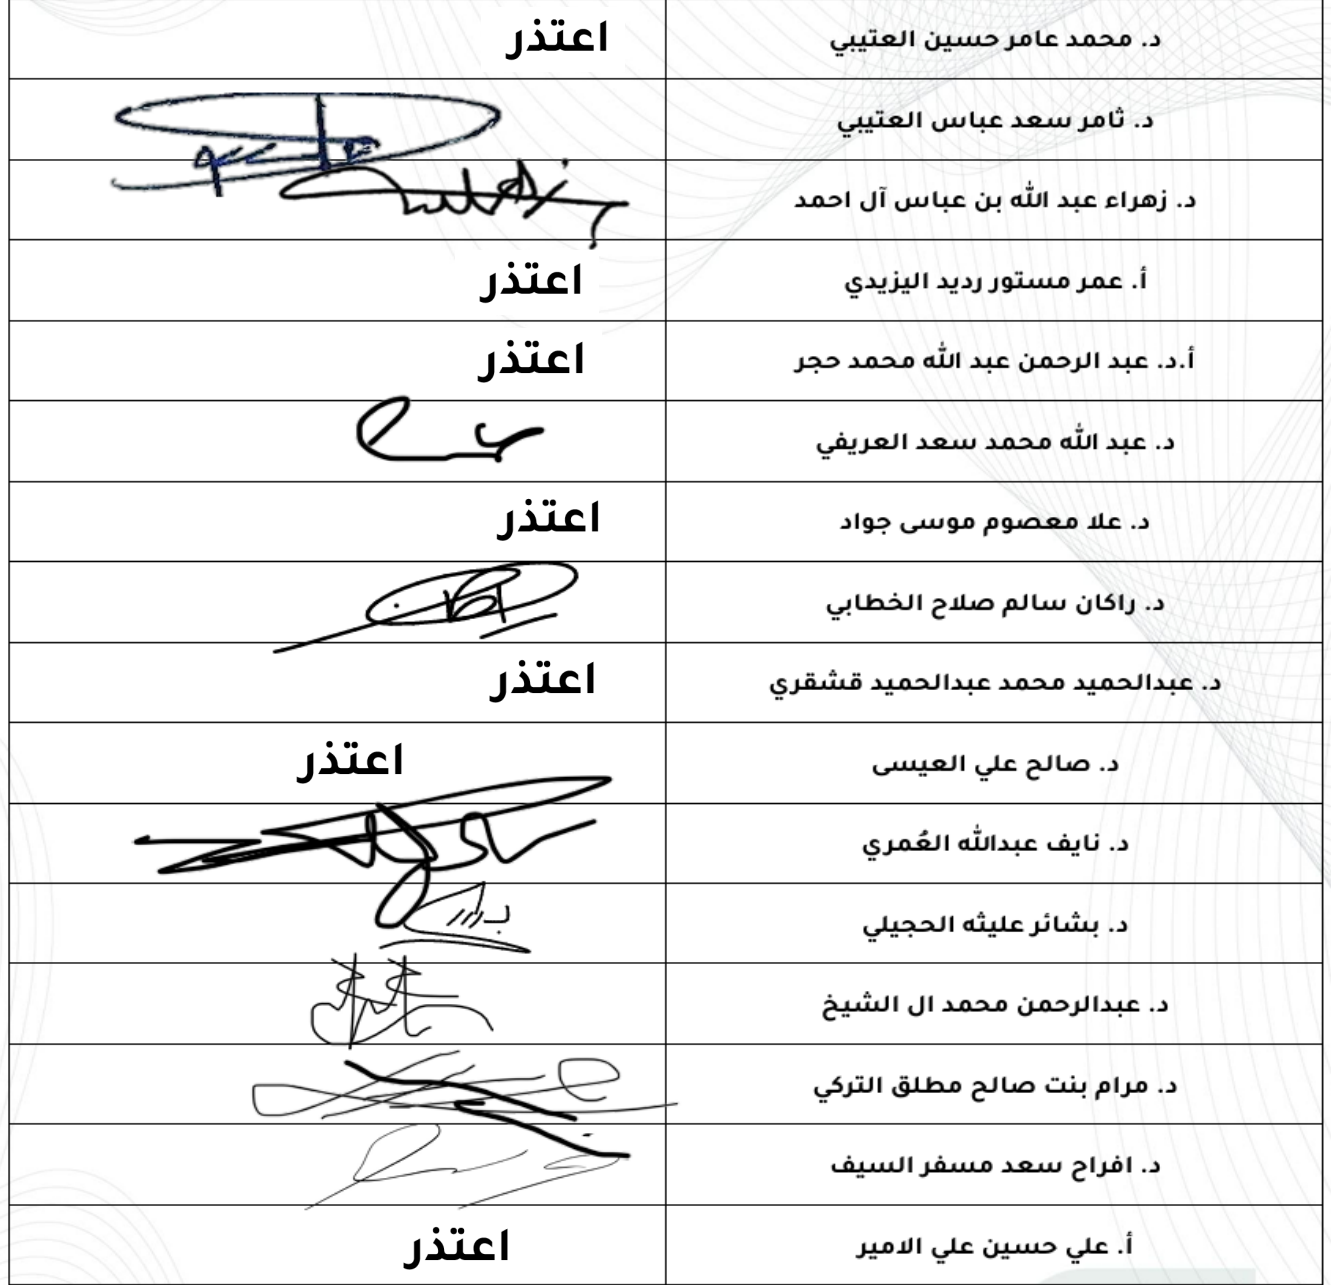 د. محمد عامر حسين العتيبي اعتذر
د. ثامر سعد عباس العتيبي
د. زهراء عبد الله بن عباس آل احمد
أ. عمر مستور رديد اليزيدي اعتذر
أ.د. عبد الرحمن عبد الله محمد حجر اعتذر
د. عبد الله محمد سعد العريفي
د. علا معصوم موسى جواد اعتذر
د. راكان سالم صلاح الخطابي
د. عبدالحميد محمد عبدالحميد قشقري اعتذر
د. صالح علي العيسى اعتذر
د. نايف عبدالله العُمري
د. بشائر عليثه الحجيلي
د. عبدالرحمن محمد ال الشيخ
د. مرام بنت صالح مطلق التركي
د. افراح سعد مسفر السيف
أ. علي حسين علي الامير اعتذر